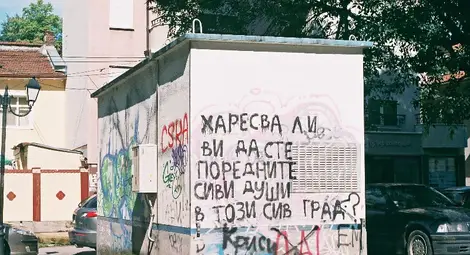 ХАРЕСВА ЛИ
ВИ ДА СТЕ
ПОРЕДНИТЕ
СИВИ ДУШИ
В ТОЗИ СИВ ГРАД?
Криси